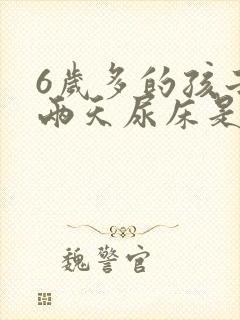 6歲多的孩子
兩天尿床是
魏警官